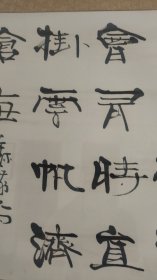 會有時直
掛雲帆濟
滄海